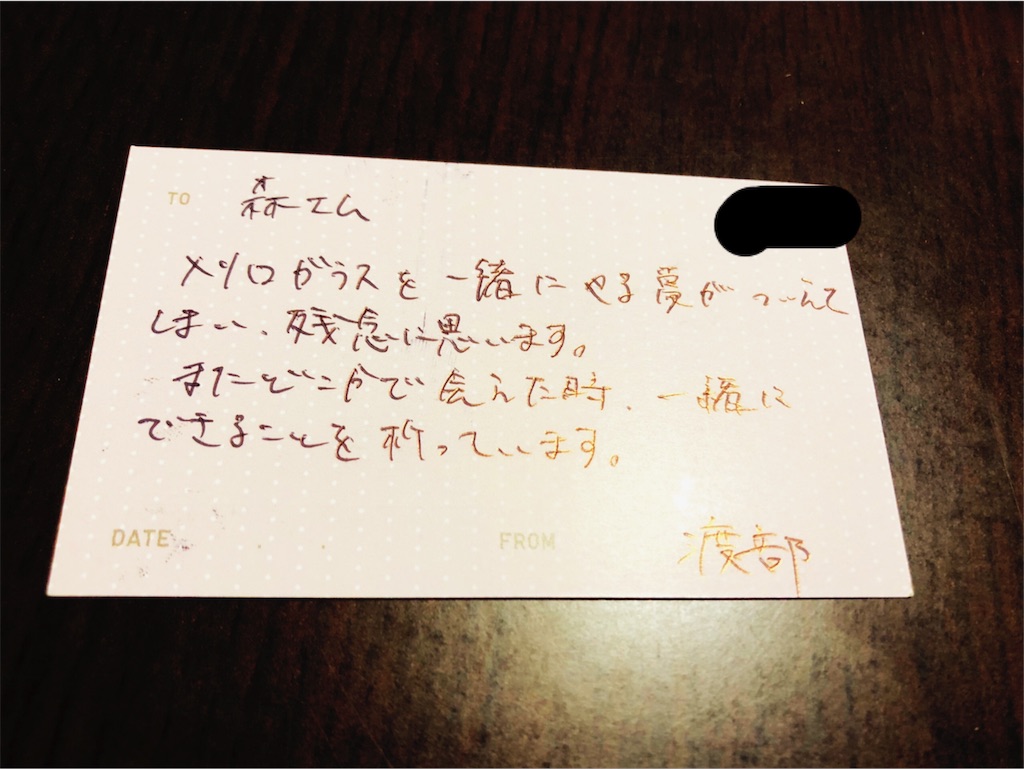 TO 森エム
メソロギラスを一緒にやる夢がついえて
しまい、残念に思います。
またどこかで会えた時、一緒に
できることを祈っています。
DATE . . FROM 渡部